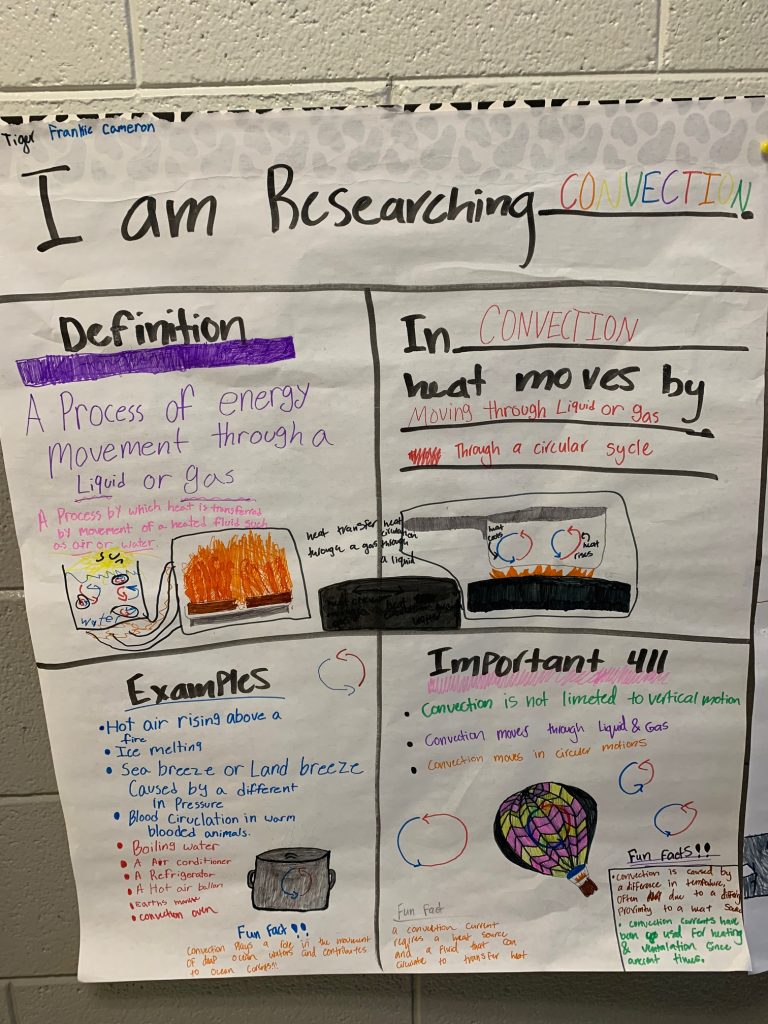 Tiger Frankie Cameron
I am Researching CONVECTION
Definition
A Process of energy
movement through a
Liquid or gas
A Process by which heat is transferred
by movement of a heated fluid such
as air or water.
Sun
water
heat transfer
through a gas
heat
circulation
through
a liquid
In CONVECTION
heat moves by
Moving through Liquid or gas
Through a circular sycle
heat
cools
heat
rises
Examples
• Hot air rising above a
fire
• Ice melting
• Sea breeze or Land breeze
Caused by a different
in Pressure
• Blood Ciruclation in warm
blooded animals.
• Boiling water
• A Air conditioner
• A Refrigerator
• A Hot air ballon
• Earths
• convection oven
Fun Fact!!
convection Plays a role in the movement
of deep ocean waters and contributes
to Ocean
Important 411
• Convection is not limeted to vertical motion
• Convection moves through Liquid & Gas
• Convection moves in circular motions
Fun Fact
a convection current
requires a heat source
and a fluid that can
circulate to transfer heat
Fun Facts!!
• Convection is caused by
a difference in
Often due to a
proximity to a heat
• convection currents have
used for heating
& ventalation since
ancient times.